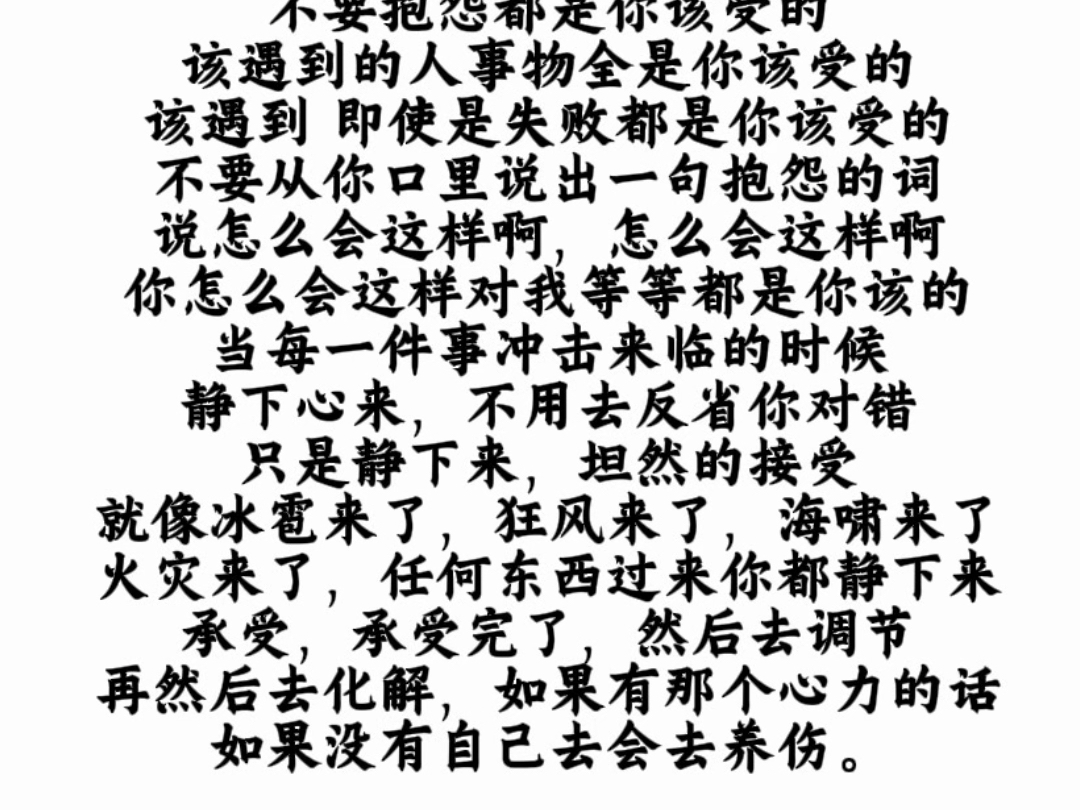 不要抱怨都是你该受的
该遇到的人事物全是你该受的
该遇到 即使是失败都是你该受的
不要从你口里说出一句抱怨的词
说怎么会这样啊，怎么会这样啊
你怎么会这样对我等等都是你该的
当每一件事冲击来临的时候
静下心来，不用去反省你对错
只是静下来，坦然的接受
就像冰雹来了，狂风来了，海啸来了
火灾来了，任何东西过来你都静下来
承受，承受完了，然后去调节
再然后去化解，如果有那个心力的话
如果没有自己去会去养伤。